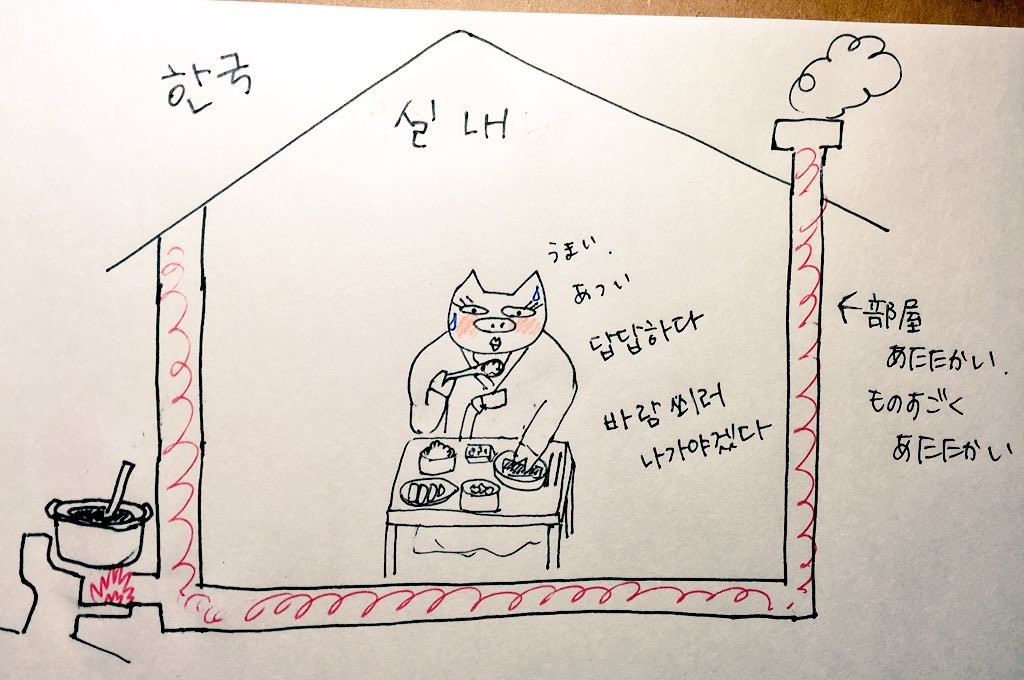 한국
실내
うまい.
あつい
답답하다
바람 쐬러
나가야겠다
←部屋
あたたかい.
ものすごく
あたたかい